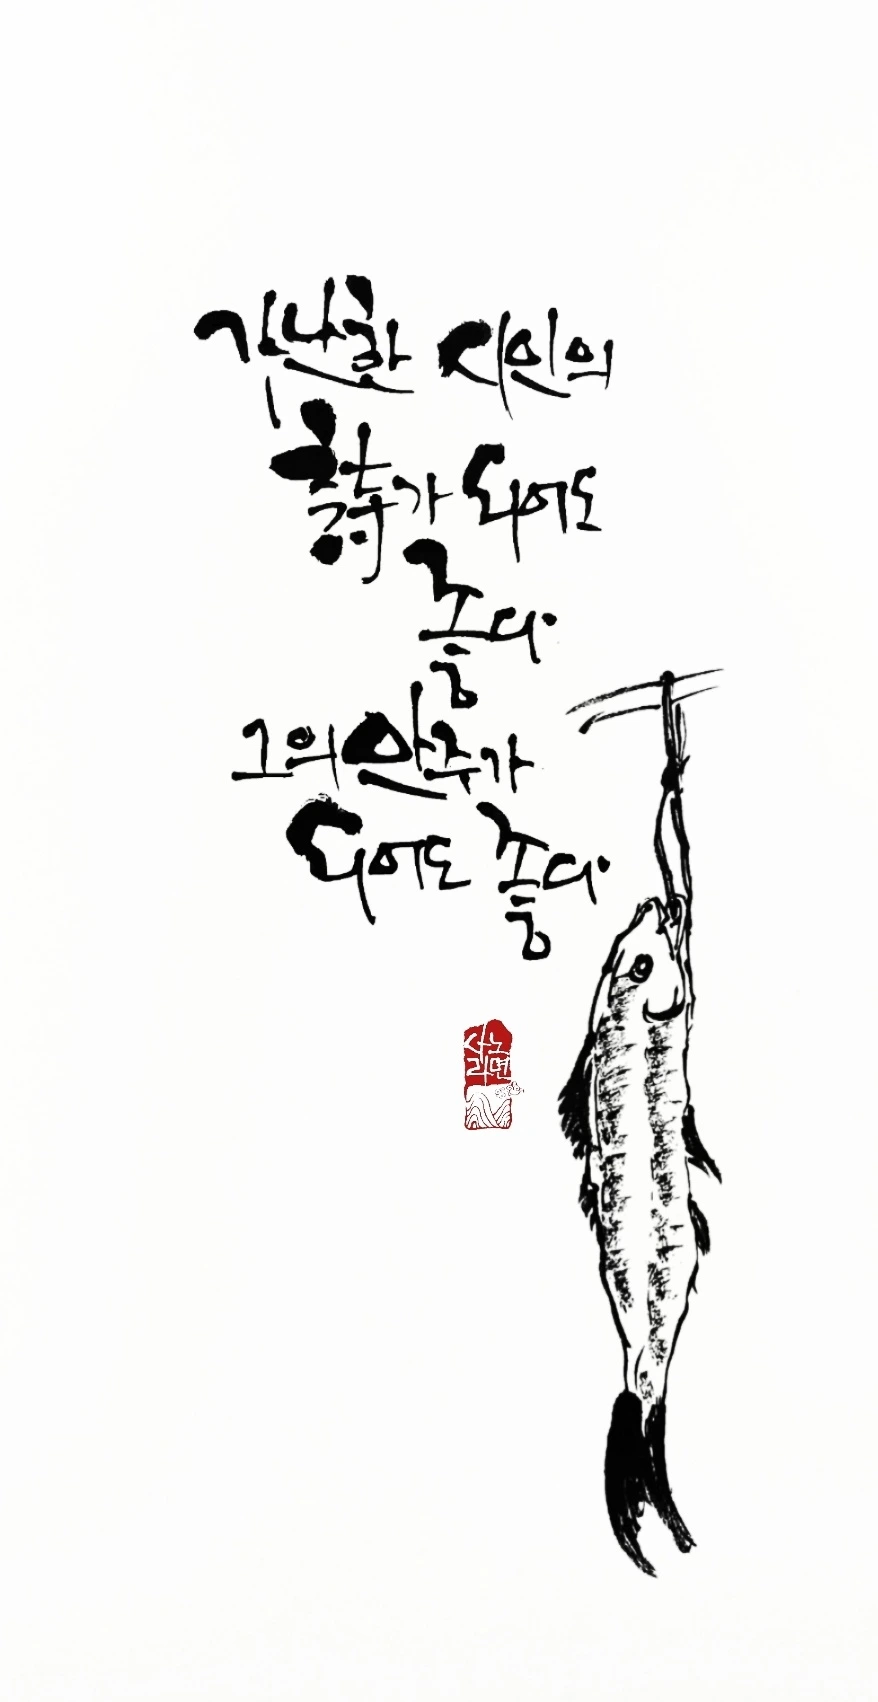 가난한 시인의
詩가 되어도
좋다.
그의 안주가
되어도 좋다.